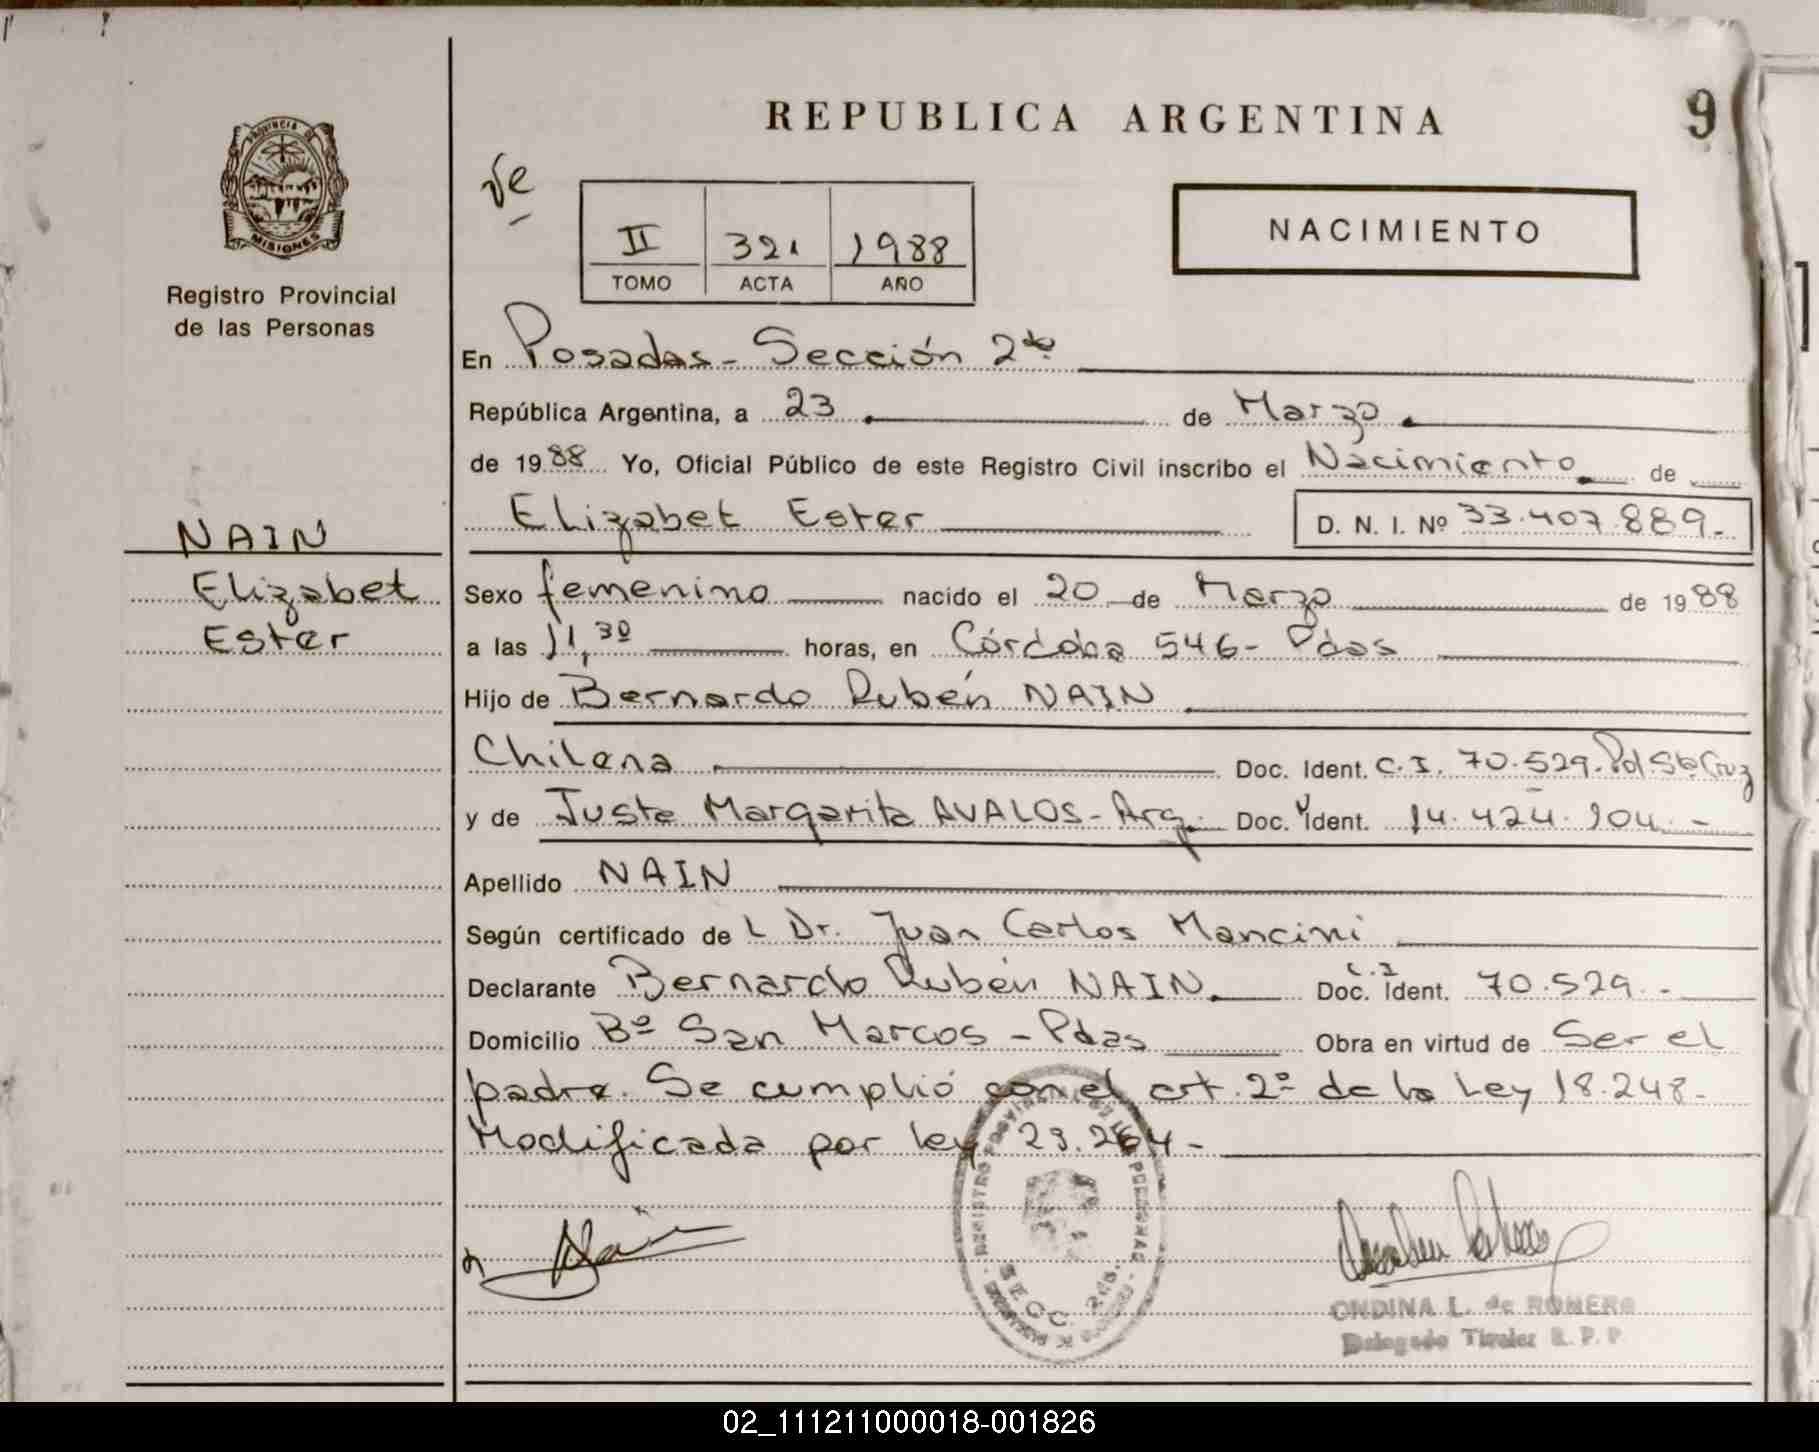 REPUBLICA ARGENTINA
9
PROVINCIA DE
MISIONES
Registro Provincial
de las Personas
II 321 1988
TOMO ACTA AÑO
NACIMIENTO
En Posadas - Sección 2da
República Argentina, a 23 de Marzo
de 1988 Yo, Oficial Público de este Registro Civil inscribo el Nacimiento de
Elizabet Ester D. N. I. Nº 33.407.889.-
NAIN
Elizabet
Ester
Sexo femenino nacido el 20 de Marzo de 1988
a las 11,30 horas, en Córdoba 546 - Pdas
Hijo de Bernardo Rubén NAIN
Chilena Doc. Ident. C.I. 70.529. Pol. Sta. Cruz
y de Justa Margarita AVALOS - Arg. Doc. Ident. 14.424.904.-
Apellido NAIN
Según certificado de L Dr. Juan Carlos Mancini
Declarante Bernardo Rubén NAIN. Doc. Ident. C.I 70.529.-
Domicilio Bº San Marcos - Pdas Obra en virtud de Ser el
padre. Se cumplió con el art. 2º de la Ley 18.248.-
Modificada por ley 23.264 -
REGISTRO PROVINCIAL DE LAS PERSONAS
SECC. 2da.
ONDINA L. de ROMERO
Delegado Titular R. P. P.
02_111211000018-001826